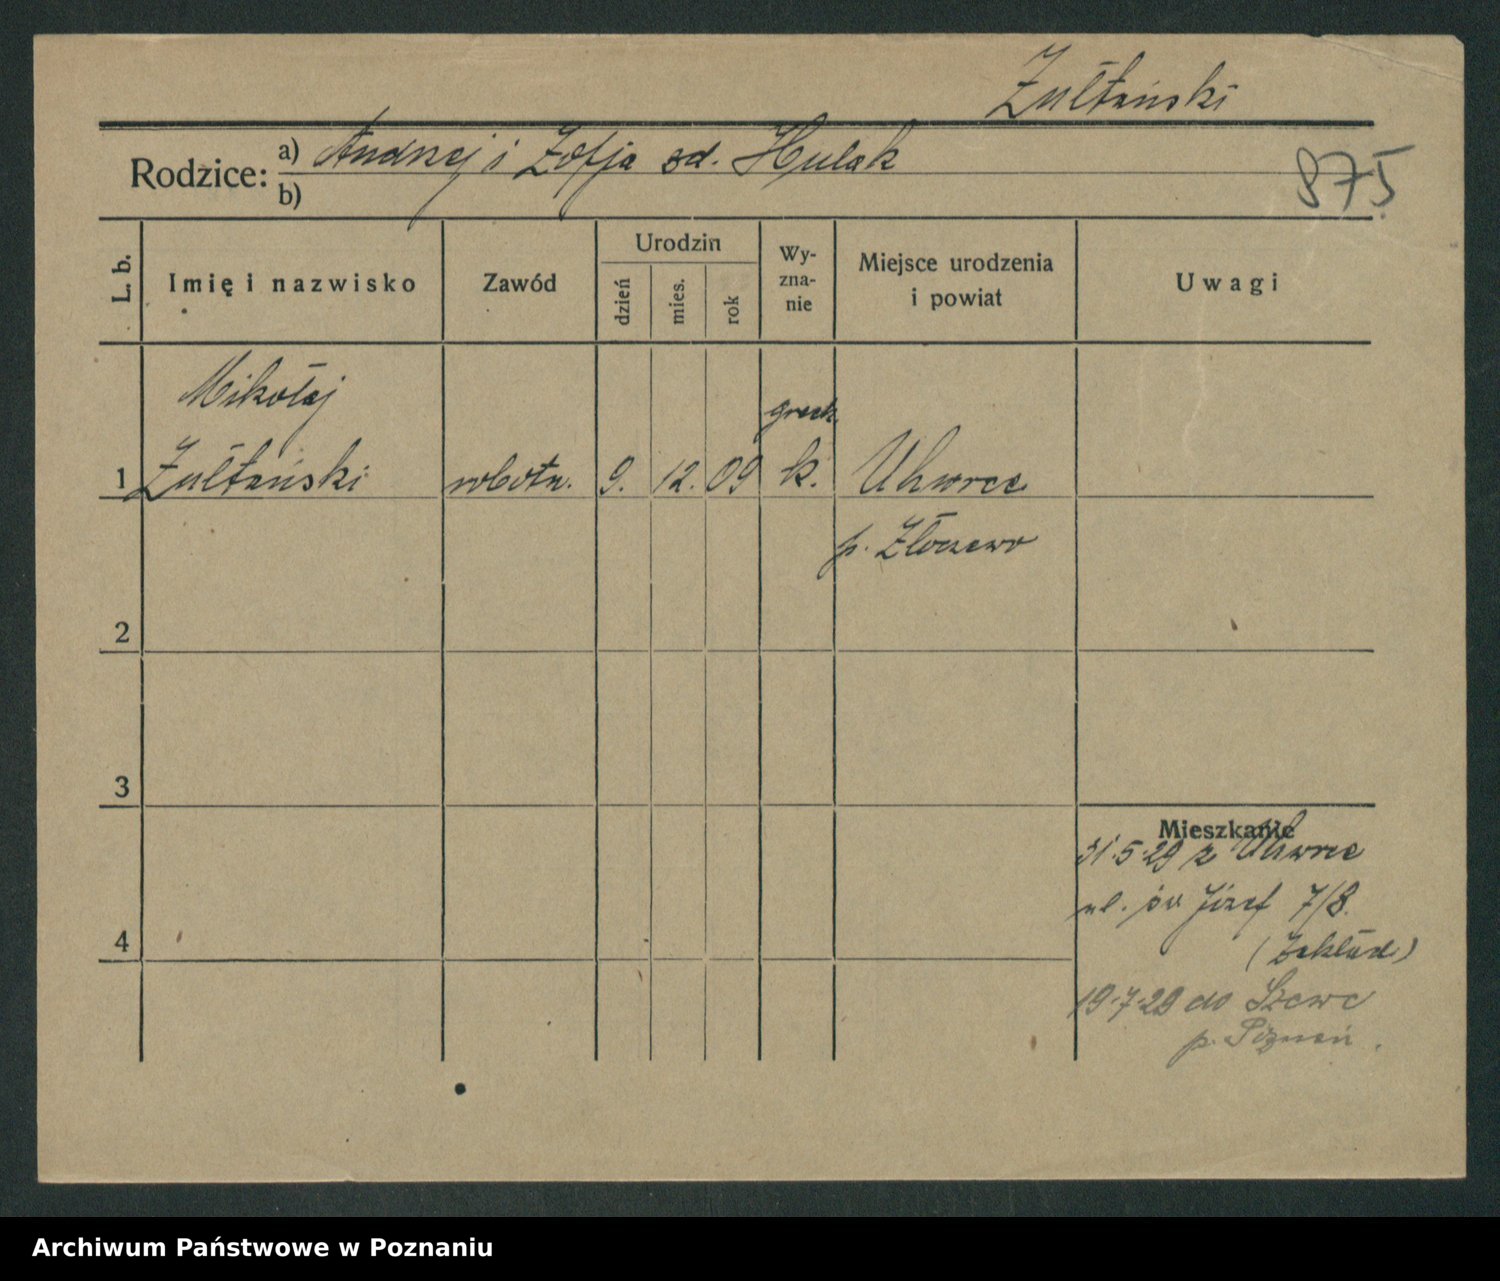 Zułtański
Rodzice: a) Andrzej i Zofja zd. Hulak
b)
875
L. b.
Imię i nazwisko
Zawód
Urodzin
dzień
mies.
rok
Wy-
zna-
nie
Miejsce urodzenia
i powiat
Uwagi
Mikołaj
greek.
1 Zułtański robotn. 9. 12. 09 k. Uhorce
p. Złoczewo
2
3
4
Mieszkanie
31.5.29 z Uhorce
ul. św Józef 7/8.
(Zakład)
19.7.29 do Szewc
p. Poznań.
Archiwum Państwowe w Poznaniu